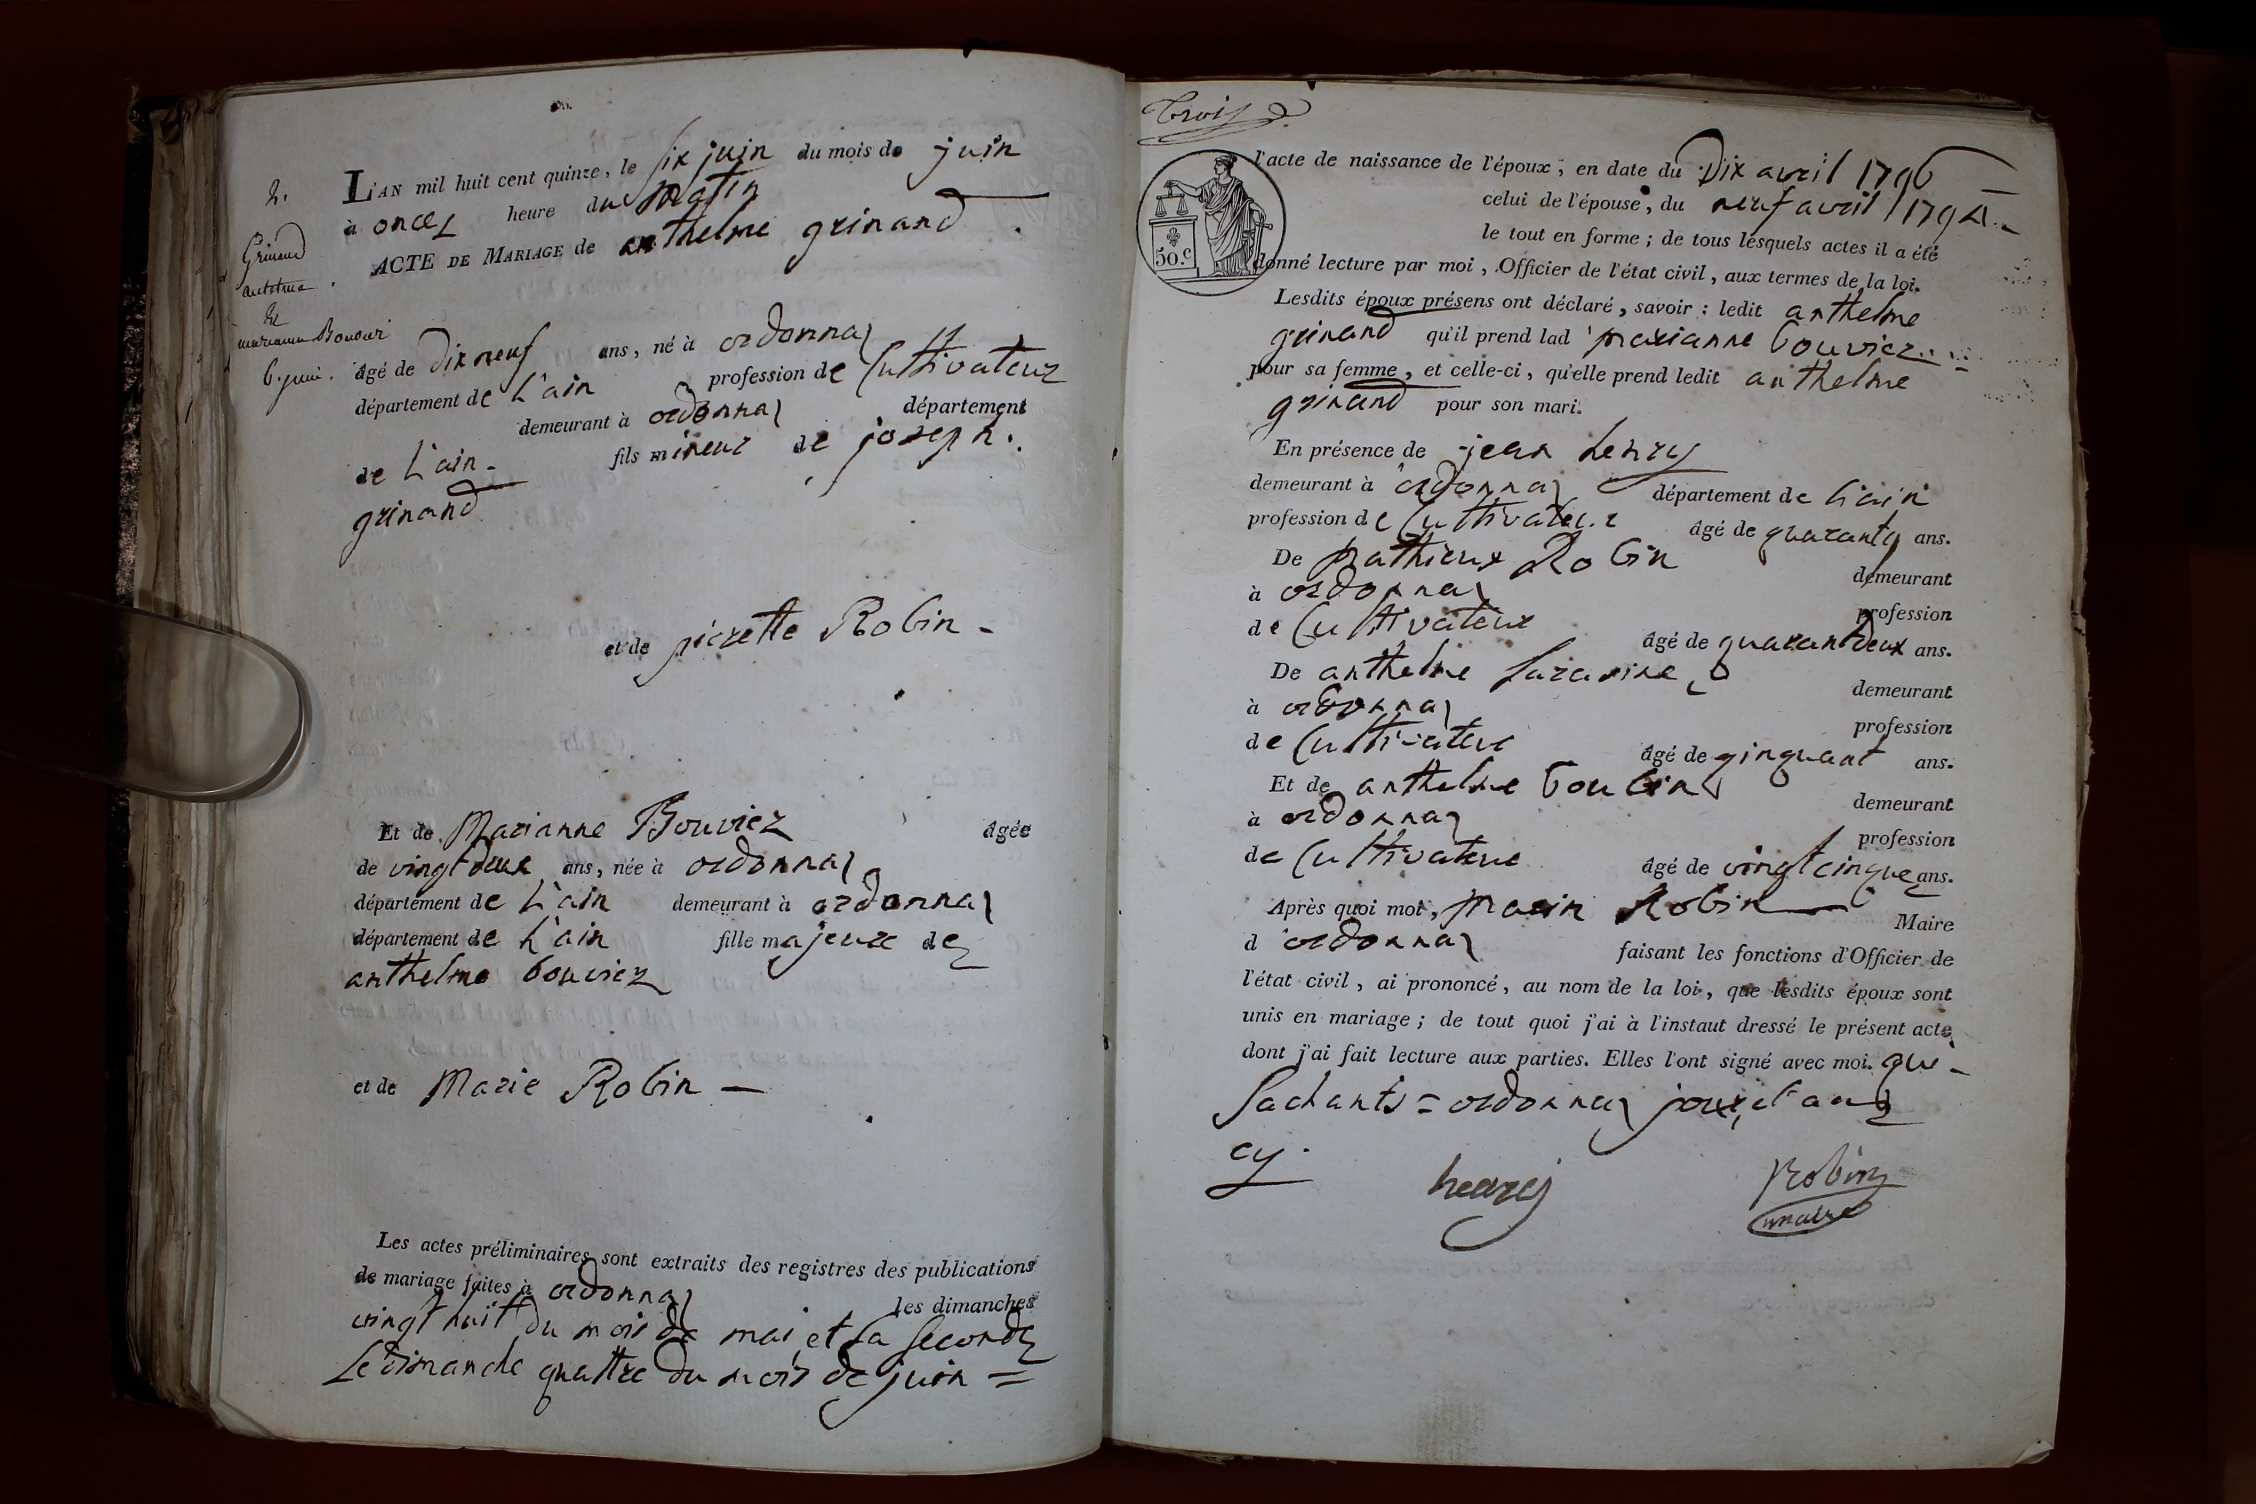 2.
Grinand
anthelme
Et
marianne Bouvier
6. juin.
L'AN mil huit cent quinze, le six juin du mois de juin
à onces heure du matin
ACTE DE MARIAGE de anthelme grinand
âgé de dix neuf ans, né à ordonnas
département de L'ain profession de Cultivateur
demeurant à ordonnas département
de L'ain - fils mineur de joseph.
grinand
et de pierette Robin -
Et de Marianne Bouvier âgée
de vingt deux ans, née à ordonnas
département de L'ain demeurant à ordonnas
département de L'ain fille majeure de
anthelme bouvier
et de Marie Robin -
Les actes préliminaires sont extraits des registres des publications
de mariage faites à ordonnas les dimanches
vingt huit du mois de mai et La seconde
Le dimanche quattre du mois de juin =
Trois
50.c
l'acte de naissance de l'époux, en date du Dix avril 1796
celui de l'épouse, du neuf avril 1794
le tout en forme ; de tous lesquels actes il a été
donné lecture par moi, Officier de l'état civil, aux termes de la loi.
Lesdits époux présens ont déclaré, savoir : ledit anthelme
grinand qu'il prend lad marianne bouvier
pour sa femme, et celle-ci, qu'elle prend ledit anthelme
grinand pour son mari.
En présence de jean henry
demeurant à ordonnas département de L'ain
profession de Cultivateur âgé de quarante ans.
De mathieux Robin demeurant
à ordonnas profession
de Cultivateur âgé de quarant deux ans.
De anthelme demeurant
à ordonnas profession
de Cultivateur âgé de ginquant ans.
Et de anthelme demeurant
à ordonnas profession
de Cultivateur âgé de vingt cinque ans.
Après quoi moi, marin Robin Maire
d'ordonnas faisant les fonctions d'Officier de
l'état civil, ai prononcé, au nom de la loi, que lesdits époux sont
unis en mariage ; de tout quoi j'ai à l'instaut dressé le présent acte,
dont j'ai fait lecture aux parties. Elles l'ont signé avec moi. qui -
Sachants = ordonnas jour, et an
henry Robin
maire